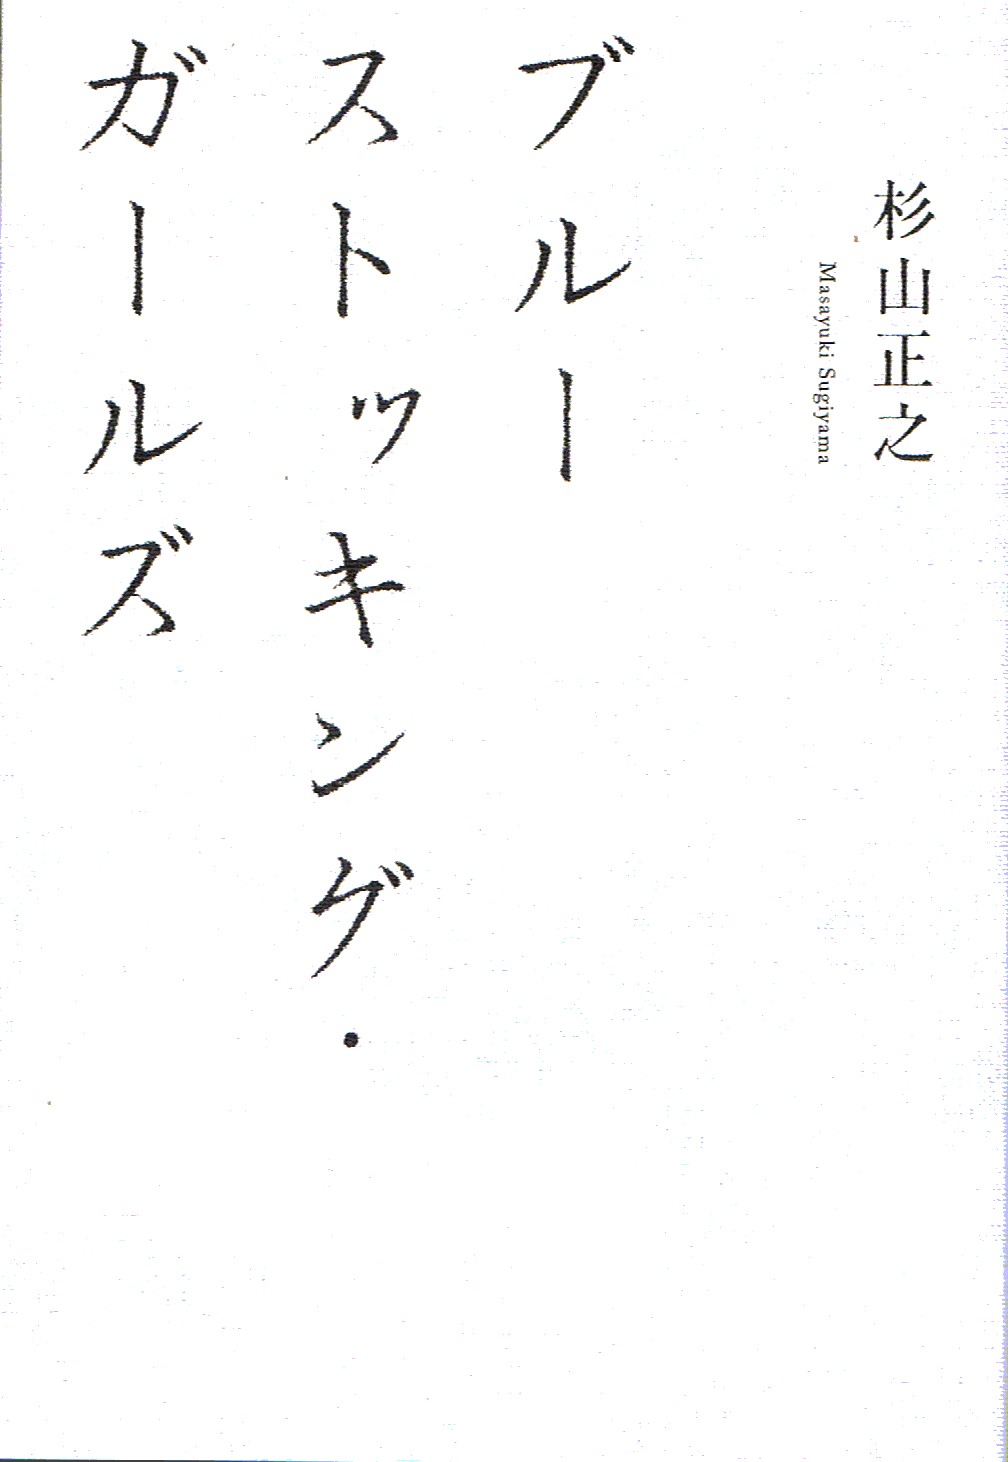 杉山正之
Masayuki Sugiyama
ブルー
ストッキング・
ガールズ